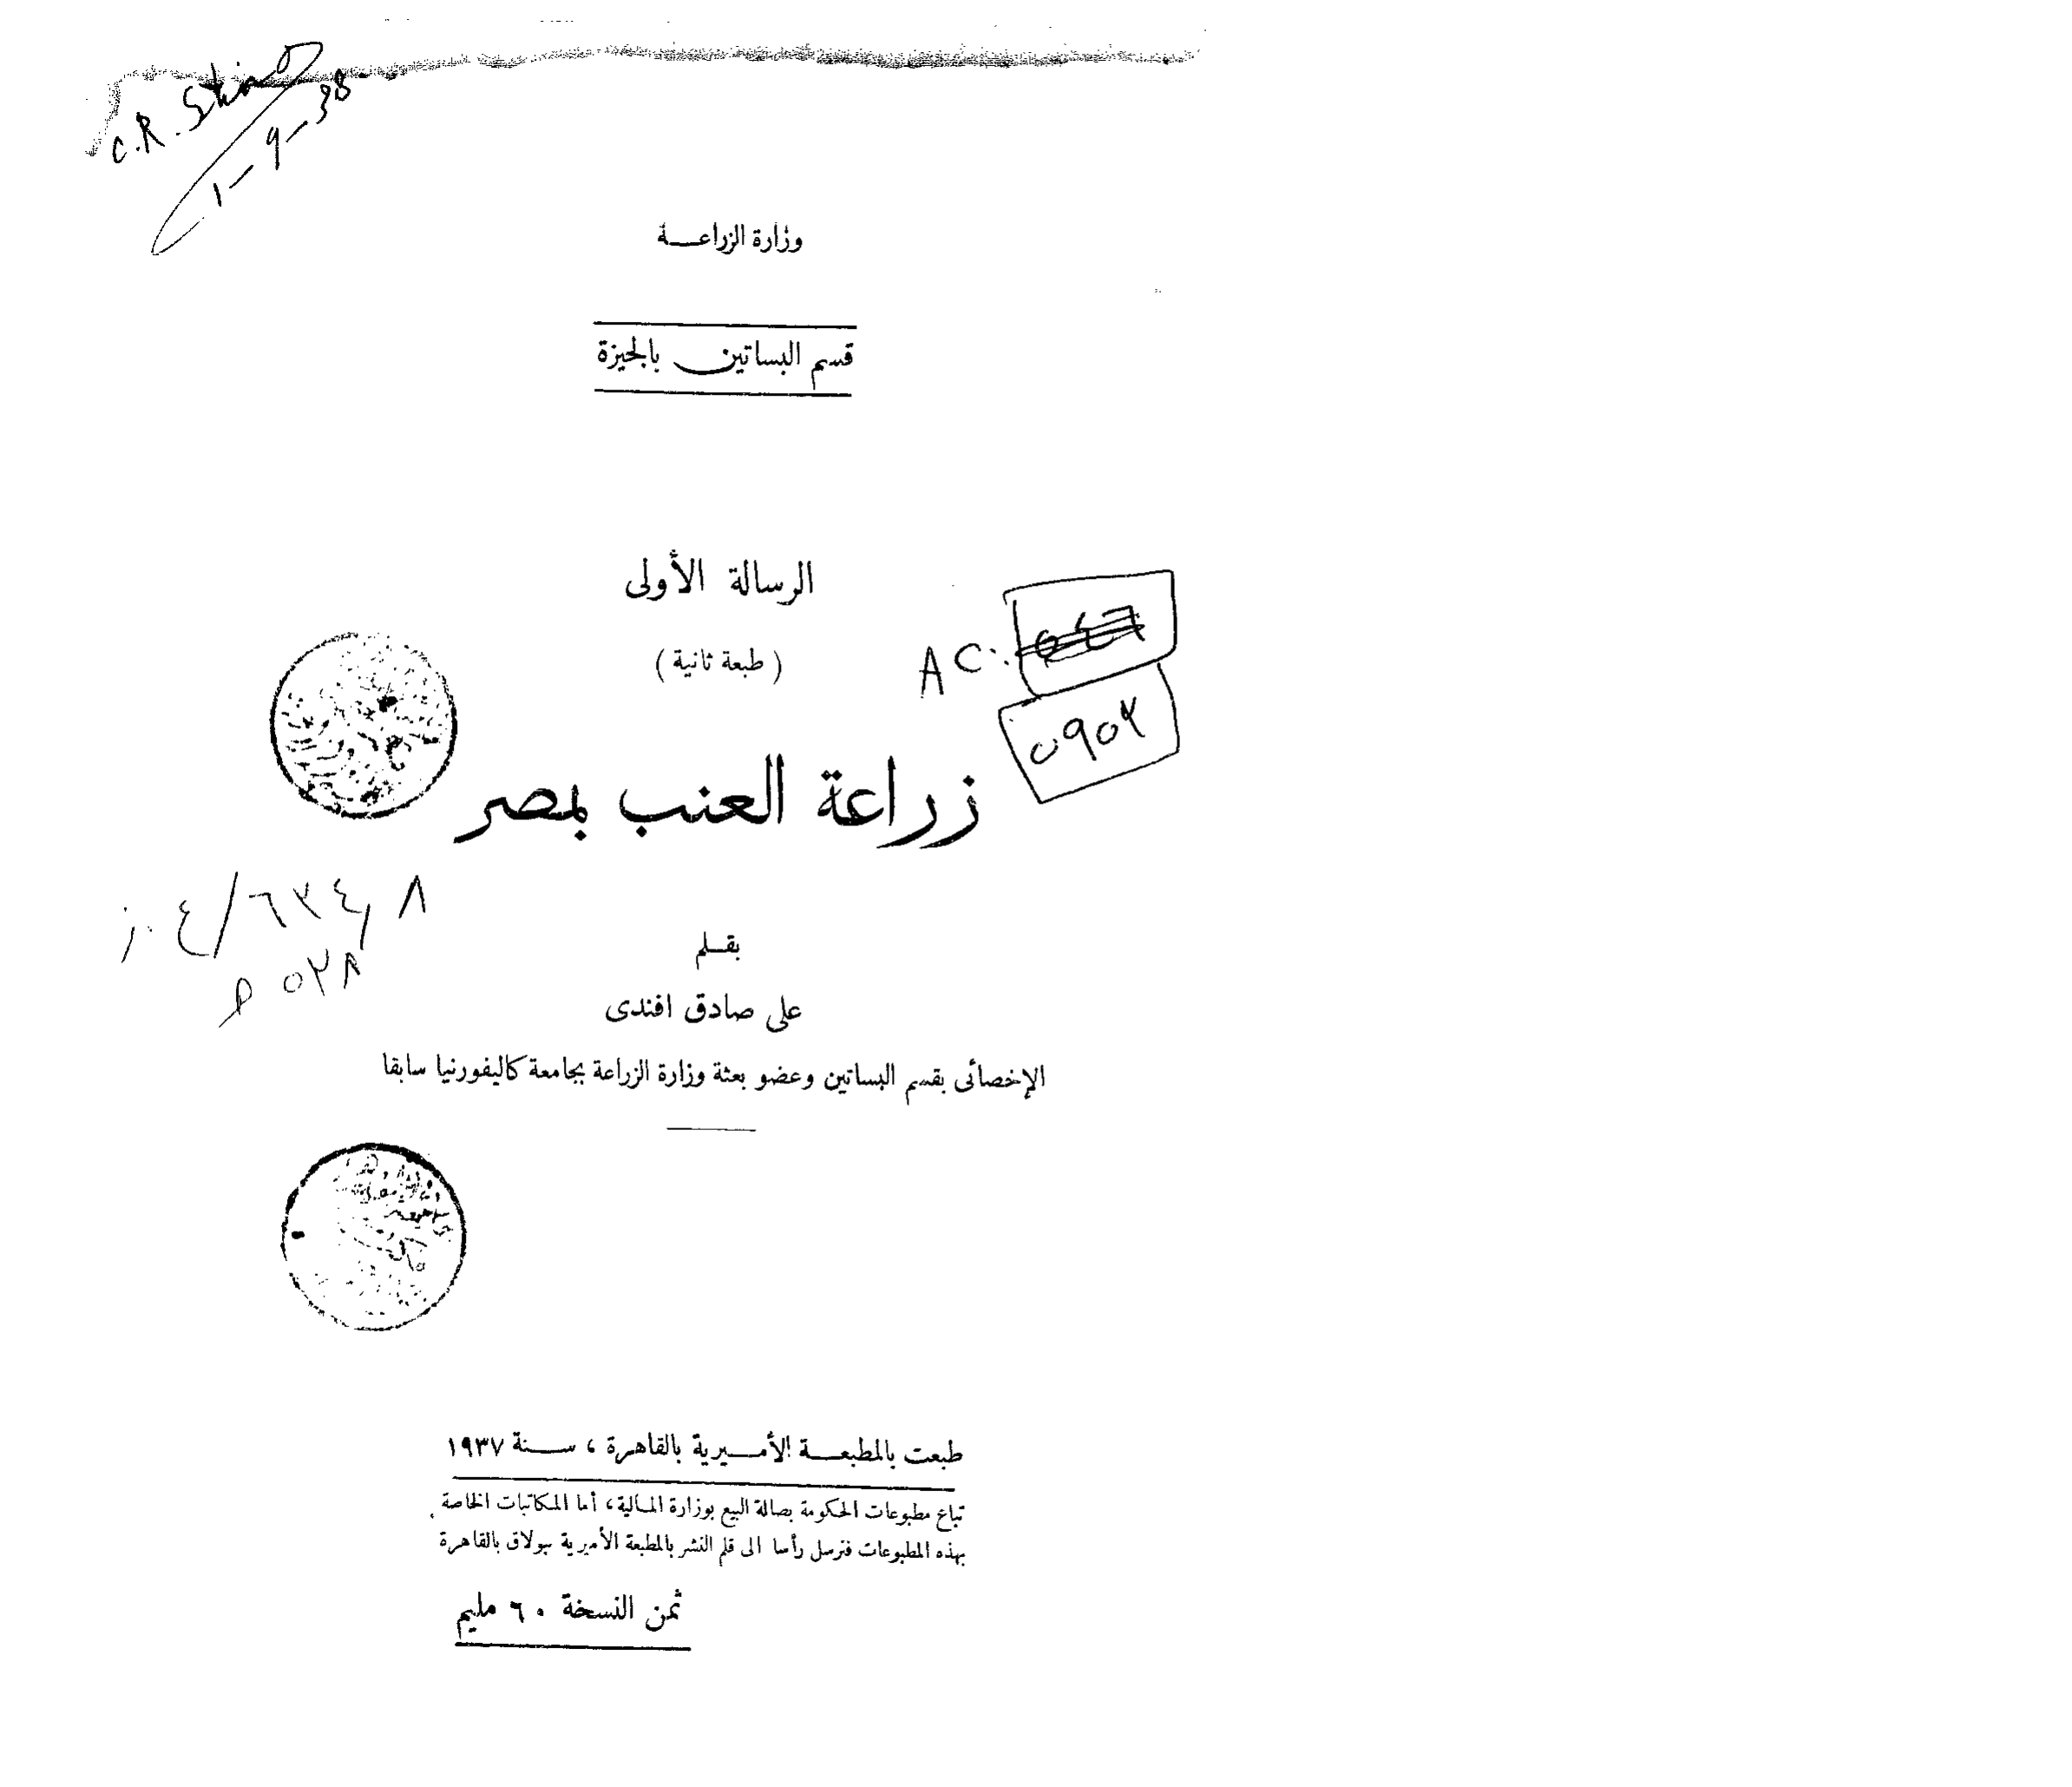 1-9-38
وزارة الزراعــة
قسم البساتين بالجيزة
الرسالة الأولى
( طبعة ثانية )
AC:
٥٩٥٢
زراعة العنب بمصر
ز. ٤/٦٣٤,٨
٥٢٨
بقـلم
على صادق افندى
الإخصائى بقسم البساتين وعضو بعثة وزارة الزراعة بجامعة كاليفورنيا سابقا
طبعت بالمطبعــة الأمــيرية بالقاهرة ، ســنة ١٩٣٧
تباع مطبوعات الحكومة بصالة البيع بوزارة المـالية، أما المكاتبات الخاصة
بهذه المطبوعات فترسل رأسا الى قلم النشر بالمطبعة الأميرية ببولاق بالقاهرة
ثمن النسخة ٦٠ مليم